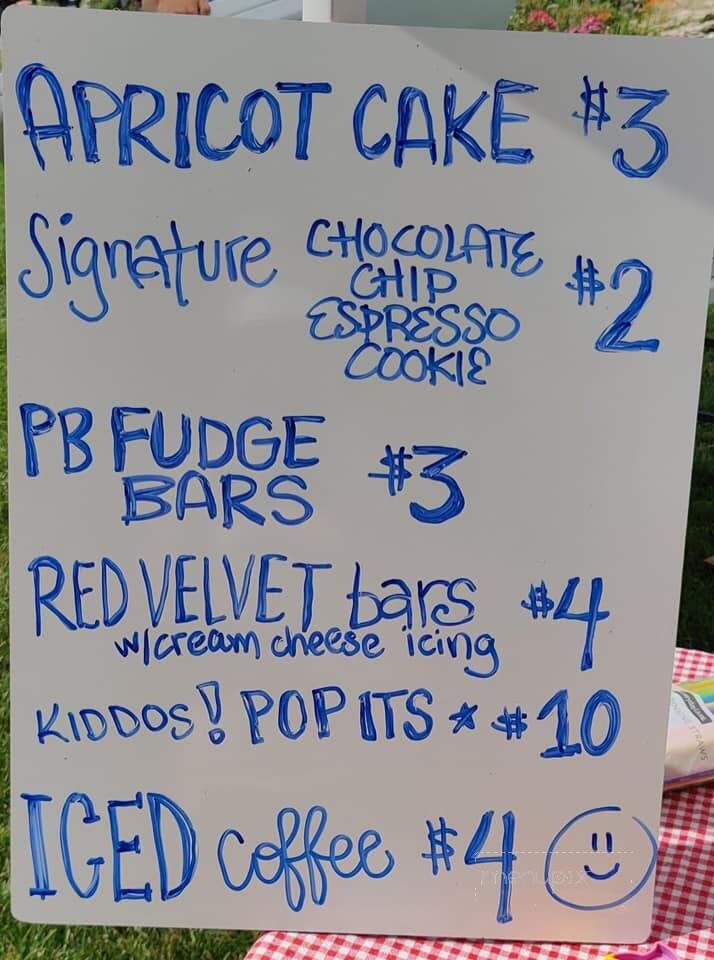 APRICOT CAKE $3
Signature CHOCOLATE
CHIP
ESPRESSO
COOKIE
$2
PB FUDGE
BARS
$3
RED VELVET bars $4
w/cream cheese icing
KIDDOS! POP ITS * $10
ICED coffee $4
menupix
STRAWS